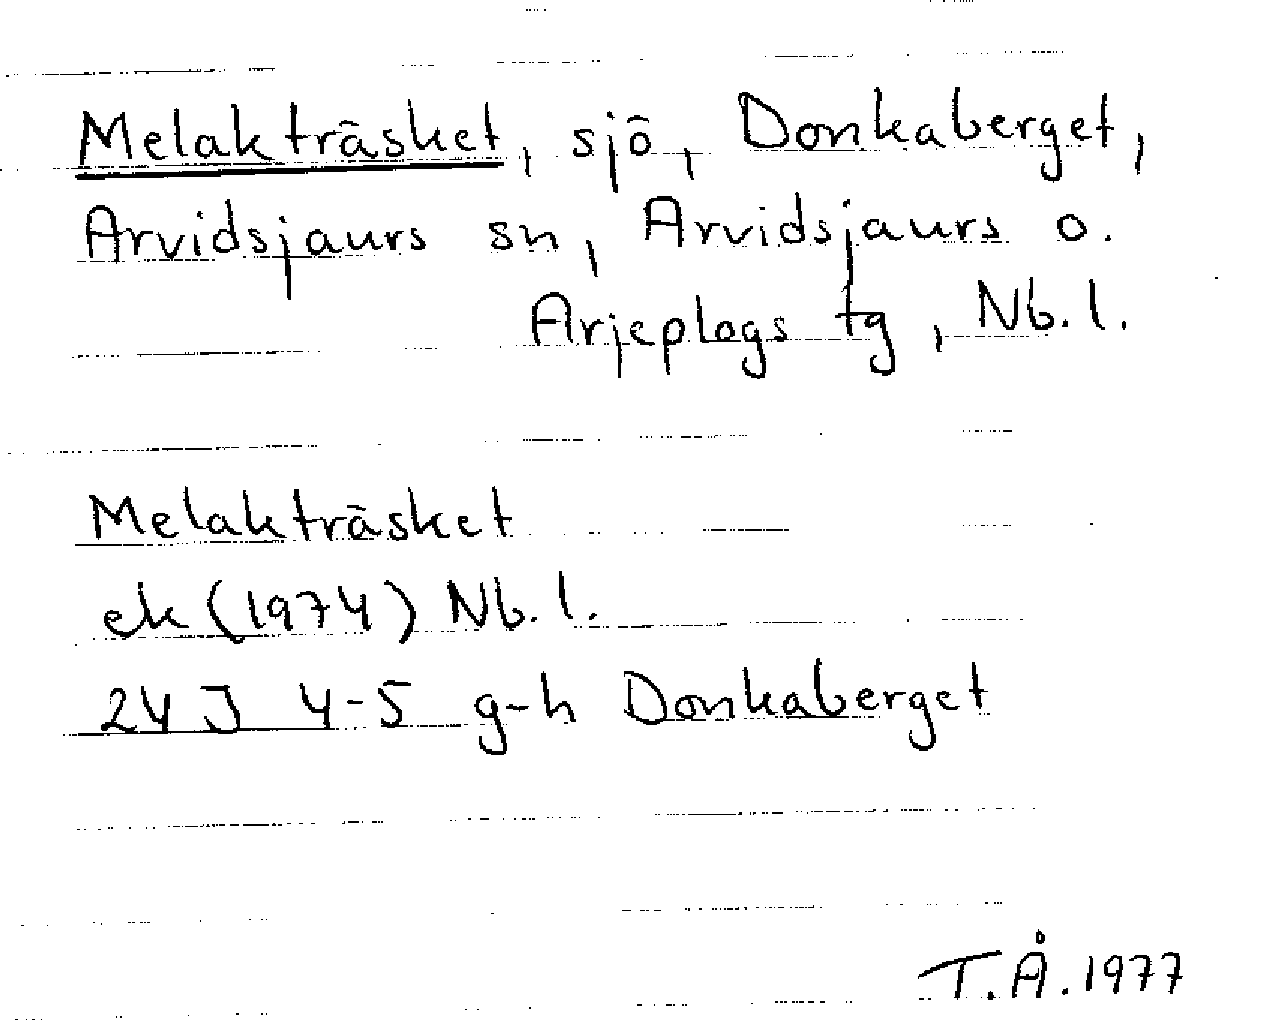 Melakträsket, sjö, Donkaberget,
Arvidsjaurs sn, Arvidsjaurs o.
Arjeplogs tg, Nb.l.
Melakträsket
ek (1974) Nb.l.
24J 4-5 g-h Donkaberget
T.Å.1977